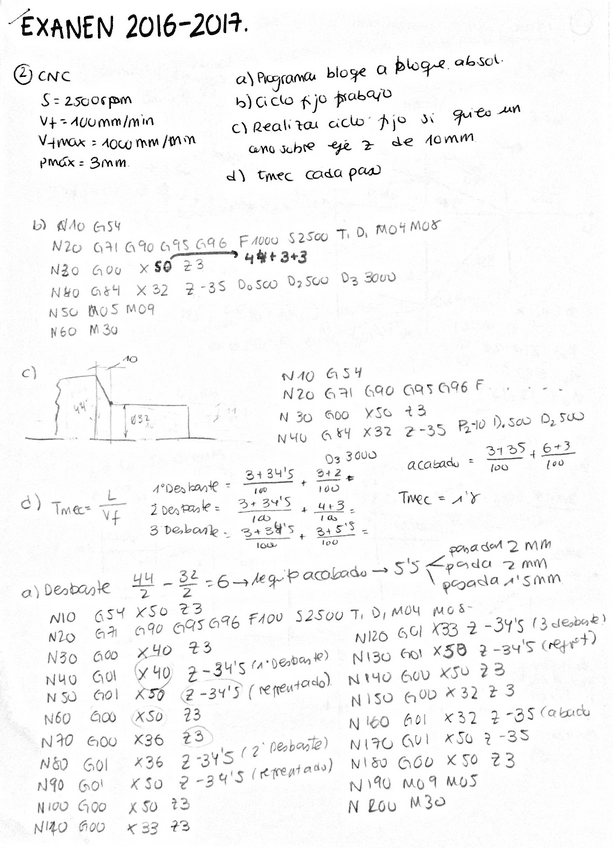 EXAMEN 2016-2017.
② CNC
S = 2500 rpm
Vf = 100 mm/min
Vfmax = 1000 mm/min
Pmáx = 3mm.
a) Programar bloqe a bloque absol.
b) Ciclo fijo trabajo
c) Realizar ciclo fijo si quiero un
cono sobre eje z de 10mm
d) tmec cada pasa
b) N10 G54
N20 G71 G90 G95 G96 F1000 S2500 T1 D1 M04 M08
N30 G00 X50 Z3 44+3+3
N40 G84 X32 Z-35 D0 500 D2 500 D3 3000
N50 M05 M09
N60 M30
c)
10
44
ø32
N10 G54
N20 G71 G90 G95 G96 F. . . . . . .
N30 G00 X50 Z3
N40 G84 X32 Z-35 P2=10 D1 500 D2 500
D3 3000
d) Tmec = L/Vf
1º Desbaste = 3+34'5/100 + 3+2/100 =
2 Desbaste = 3+34'5/100 + 4+3/100 =
3 Desbaste = 3+34'5/100 + 3+5'5/100 =
acabado = 3+35/100 + 6+3/100
Tmec = 1'8
a) Desbaste 44/2 - 32/2 = 6 → 1 acabado → 5'5
pasada 2 mm
pasada 2 mm
pasada 1'5mm
N10 G54 X50 Z3
N20 G71 G90 G95 G96 F100 S2500 T1 D1 M04 M08-
N30 G00 X40 Z3
N40 G01 X40 Z-34'5 (1º Desbaste)
N50 G01 X50 Z-34'5 (refrentado)
N60 G00 X50 Z3
N70 G00 X36 Z3
N80 G01 X36 Z-34'5 (2º Desbaste)
N90 G01 X50 Z-34'5 (refrentado)
N100 G00 X50 Z3
N110 G00 X33 Z3
N120 G01 X33 Z-34'5 (3 desbaste)
N130 G01 X50 Z-34'5 (refret)
N140 G00 X50 Z3
N150 G00 X32 Z3
N160 G01 X32 Z-35 (acabado
N170 G01 X50 Z-35
N180 G00 X50 Z3
N190 M09 M05
N200 M30